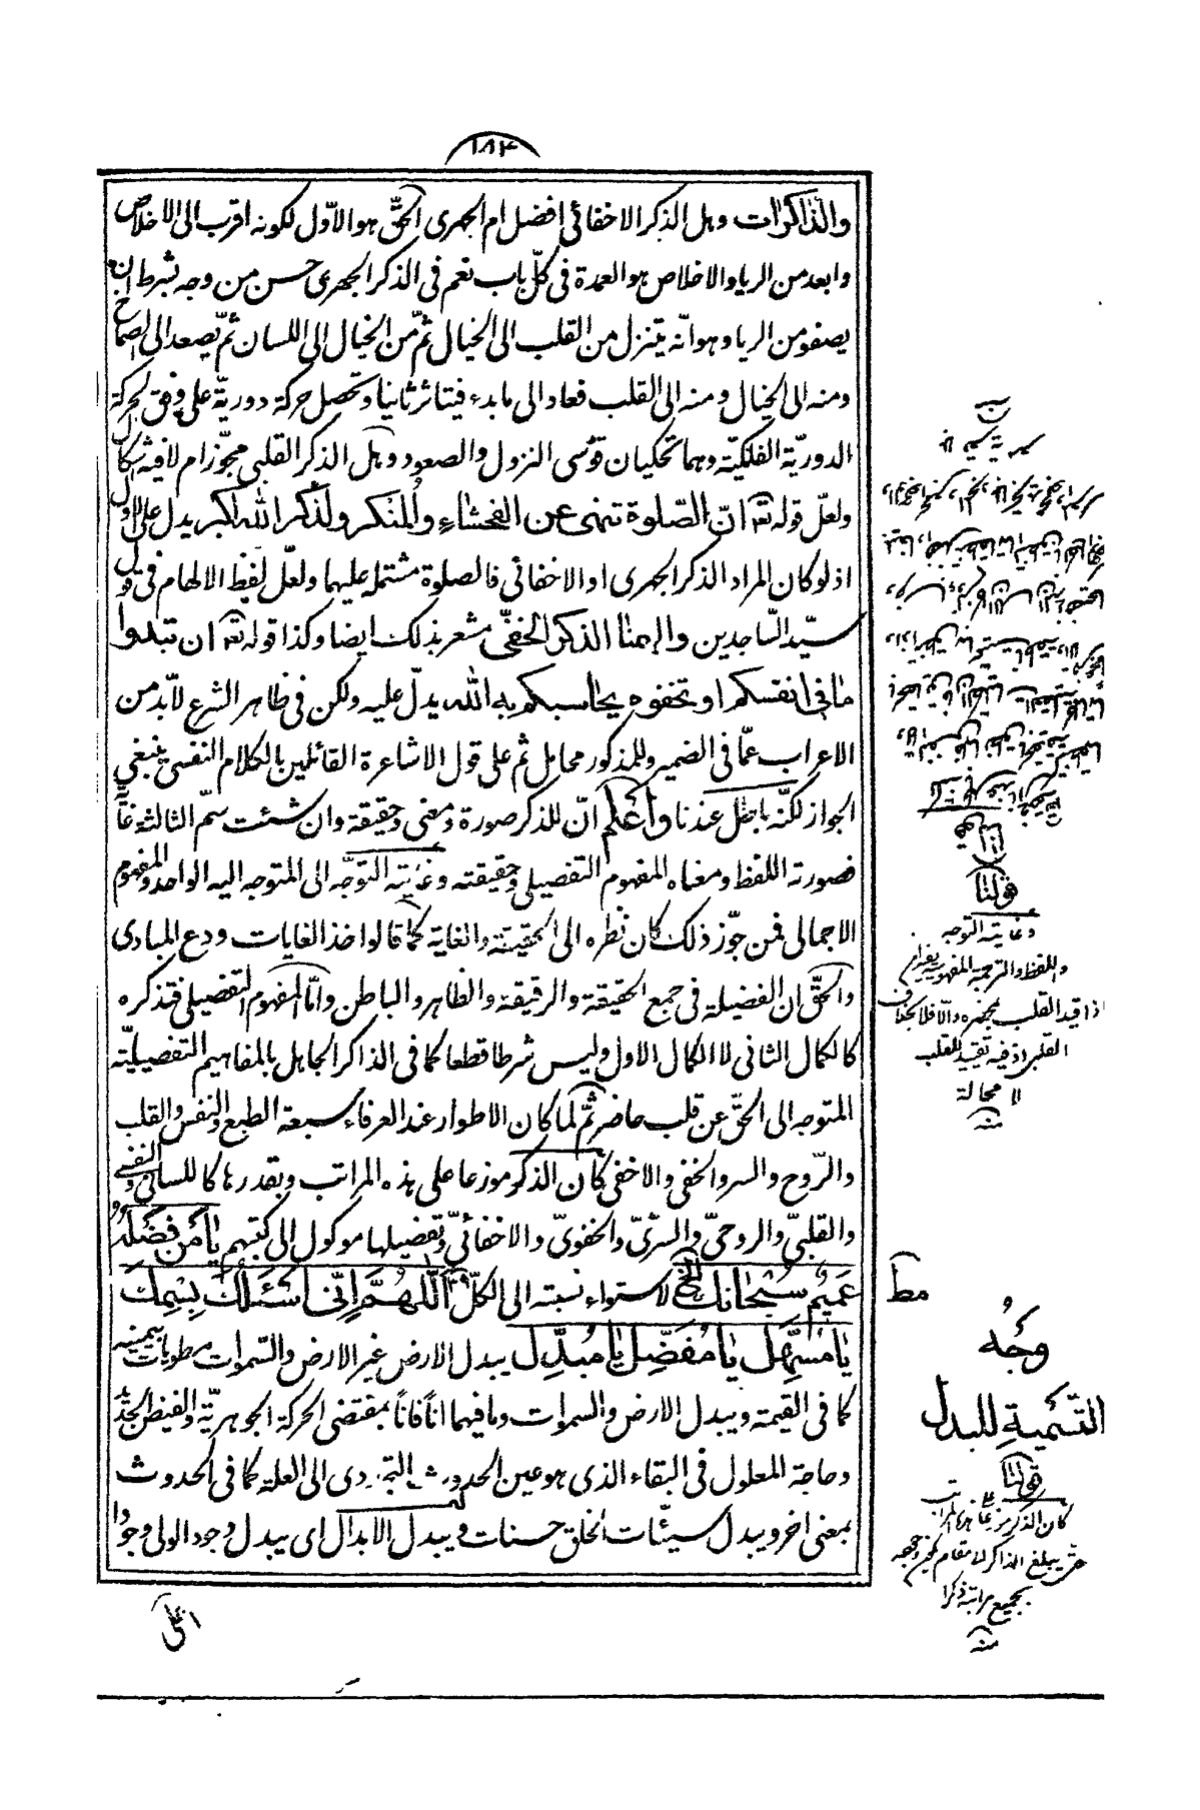 ١٨٣
والذاكرات وهل الذكر الاخفائى افضل ام الجهرى الحقّ هو الاوّل لكونه اقرب الى الاخلاص
وابعد من الريا والاخلاص هو العمدة فى كلّ باب نعم فى الذكر الجهرى حسن من وجه بشرط ان
يصفو من الريا وهو انّه يتنزل من القلب الى الخيال ثمّ من الخيال الى اللسان ثمّ يصعد الى الصماخ
ومنه الى الخيال ومنه الى القلب فعاد الى ما بدء فيتاثر ثانيا وتحصل حركة دوريّة على وفق الحركة
الدوريّة الفلكيّة وهما تحكيان قوسى النزول والصعود وهل الذكر القلبى مجوّز ام لا فيه اشكال
ولعلّ قوله تعالى انّ الصّلوة تنهى عن الفحشاء والمنكر ولذكر الله اكبر يدل على الاول
اذ لو كان المراد الذكر الجهرى او الاخفائى فالصلوة مشتملة عليهما ولعلّ لفظ الالهام فى قول
سيّد السّاجدين والهمنا الذكر الخفىّ مشعر بذلك ايضا وكذا قوله تعالى ان تبدوا
ما فى انفسكم او تخفوه يحاسبكم به الله يدلّ عليه ولكن فى ظاهر الشرع لابّد من
الاعراب عمّا فى الضمير وللمذكور محامل ثم على قول الاشاعرة القائلين بالكلام النفسى ينبغى
الجواز لكنّه باطل عندنا واعلم انّ للذكر صورة ومعنى وحقيقة وان شئت سمّ الثالث غاية
فصورته اللفظ ومعناه المفهوم التفصيلى وحقيقته وغايته التوجّه الى المتوجه اليه الواحد والمفهوم
الاجمالى فمن جوّز ذلك كان نظره الى الحقيقة والغاية كما قالوا خذ الغايات ودع المبادى
والحقّ ان الفضيلة فى جمع الحقيقة والرقيقة والظاهر والباطن وامّا المفهوم التفصيلى فتذكره
كالكمال الثانى لا الكمال الاول وليس شرطا قطعا كما فى الذاكر الجاهل بالمفاهيم التفصيليّة
المتوجه الى الحقّ عن قلب حاضر ثمّ لما كان الاطوار عند العرفاء سبعة الطبع والنفس والقلب
والرّوح والسر والخفى والاخفى كان الذكر موزعا على هذه المراتب وبقدرها كاللسانى والنفسى
والقلبىّ والروحىّ والسرّىّ والخفوىّ والاخفائىّ وتفصيلها موكول الى كتبهم يا من فضله
عميم سبحانك الخ لاستواء نسبته الى الكلّ اللّهمّ انّى اسئلك بسمك
يا مسهّل يا مفضّل يا مبدّل يبدل الارض غير الارض والسّموات مطويات بيمينه
كما فى القيمة ويبدل الارض والسموات وما فيهما آنا فآنا بمقتضى الحركة الجوهريّة والفيض الجديد
وحاجة المعلول فى البقاء الذى هو عين الحدوث التجددى الى العلة كما فى الحدوث
بمعنى اخر ويبدل سيّئات الخلق حسنات ويبدل الابدال اى يبدل وجود الولى وجودا
اعلى
قولنا
وغايته التوجه
واللفظ والترجمة المفهومية
اذا قيد القلب بمحضره والّا فلا بخلاف
القلبى اذ فيه تقييد للقلب
لا محالة
منه
مط
وجه
التّسمية للبدل
قولنا
كان الذكر موزعا على المراتب
حتى يبلغ الذاكر
بجميع مراتبه ذكرا
منه